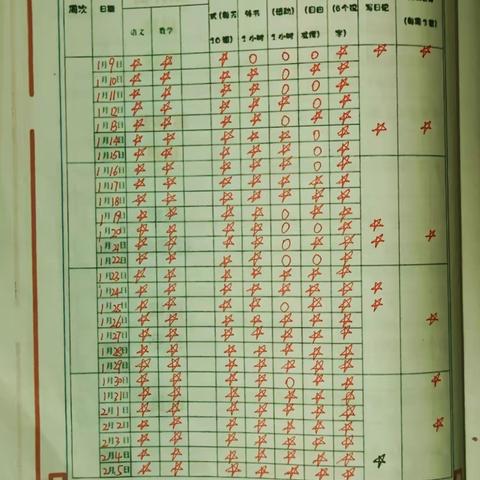 周次 日期 语文 数学 式(每天10题) 外书1小时 (运动)1小时 (自由 (6个汉字) 写日记 (每周1篇)
1月9日
1月10日
1月11日
1月12日
1月13日
1月14日
1月15日
1月16日
1月17日
1月18日
1月19日
1月20日
1月21日
1月22日
1月23日
1月24日
1月25日
1月26日
1月27日
1月28日
1月29日
1月30日
1月31日
2月1日
2月2日
2月3日
2月4日
2月5日